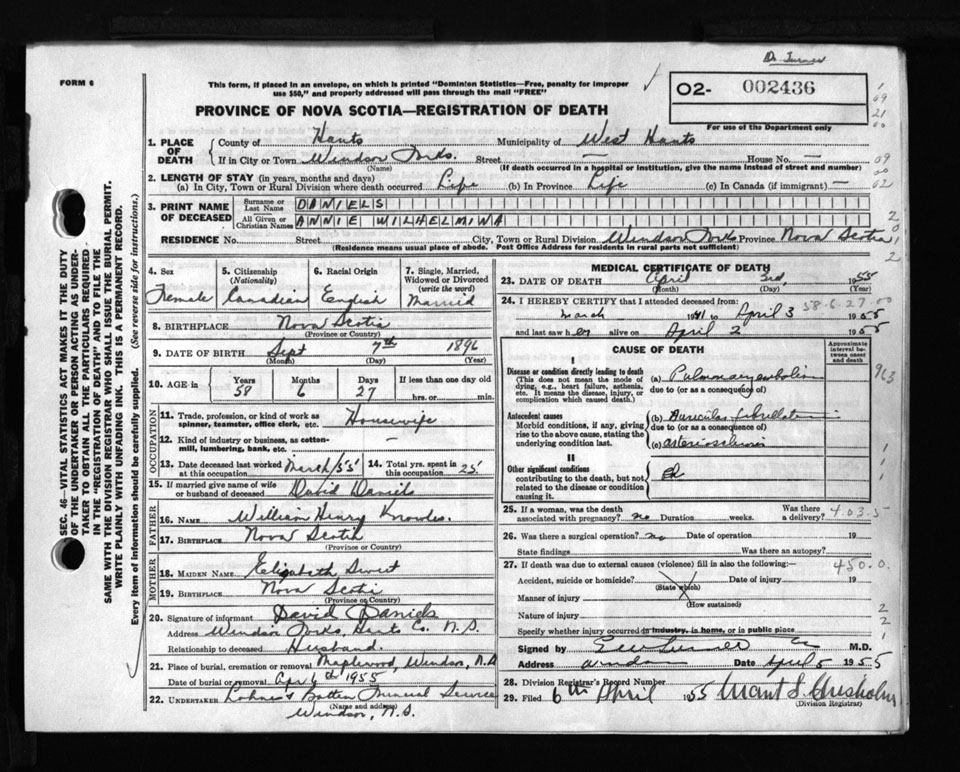 D. Turner
FORM 6
This form, if placed in an envelope, on which is printed "Dominion Statistics—Free, penalty for improper
use $50," and properly addressed will pass through the mail "FREE"
O2- 002436
For use of the Department only
PROVINCE OF NOVA SCOTIA—REGISTRATION OF DEATH
1. PLACE OF DEATH
County of Hants Municipality of West Hants
If in City or Town Windsor Forks. Street — House No. —
(Name) (If death occurred in a hospital or institution, give the name instead of street and number)
2. LENGTH OF STAY (in years, months and days)
(a) In City, Town or Rural Division where death occurred Life (b) In Province Life (c) In Canada (if immigrant) —
3. PRINT NAME OF DECEASED
Surname or Last Name DANIELS
All Given or Christian Names ANNIE WILHELMINA
RESIDENCE No. Street City, Town or Rural Division Windsor Forks Province Nova Scotia
(Residence means usual place of abode. Post Office Address for residents in rural parts not sufficient)
4. Sex Female
5. Citizenship (Nationality) Canadian
6. Racial Origin English
7. Single, Married, Widowed or Divorced (write the word) Married
8. BIRTHPLACE Nova Scotia
(Province or Country)
9. DATE OF BIRTH Sept 7th 1896
(Month) (Day) (Year)
10. AGE in Years 58 Months 6 Days 27 If less than one day old hrs. or min.
OCCUPATION
11. Trade, profession, or kind of work as
spinner, teamster, office clerk, etc. Housewife
12. Kind of industry or business, as cotton-
mill, lumbering, bank, etc. —
13. Date deceased last worked at this occupation March/55 14. Total yrs. spent in this occupation 25
15. If married give name of wife
or husband of deceased David Daniels
FATHER
16. NAME William Henry Knowles.
17. BIRTHPLACE Nova Scotia
(Province or Country)
MOTHER
18. MAIDEN NAME Elizabeth Sweet
19. BIRTHPLACE Nova Scotia
(Province or Country)
20. Signature of informant David Daniels
Address Windsor Forks, Hants Co. N.S.
Relationship to deceased Husband.
21. Place of burial, cremation or removal Maplewood, Windsor, N.S
Date of burial or removal Apr 6th 1955
22. UNDERTAKER Funeral Service
(Name and address)
Windsor, N.S.
MEDICAL CERTIFICATE OF DEATH
23. DATE OF DEATH April 3rd, 1955
(Month) (Day) (Year)
24. I HEREBY CERTIFY that I attended deceased from:
58-6-27-00
March 1941 to April 3 1955
and last saw her alive on April 2 1955
CAUSE OF DEATH
Approximate interval between onset and death
I
Disease or condition directly leading to death
(This does not mean the mode of dying, e.g., heart failure, asthenia, etc. It means the disease, injury, or complication which caused death.)
(a) Pulmonary embolism
due to (or as a consequence of)
Antecedent causes
Morbid conditions, if any, giving rise to the above cause, stating the underlying condition last.
(b) Auricular fibrillation
due to (or as a consequence of)
(c) arteriosclerosis
II
Other significant conditions
contributing to the death, but not related to the disease or condition causing it.
25. If a woman, was the death associated with pregnancy? no Duration weeks. Was there a delivery?
403.5
26. Was there a surgical operation? no Date of operation 19
State findings Was there an autopsy?
27. If death was due to external causes (violence) fill in also the following:—
450.0
Accident, suicide or homicide? Date of injury 19
(State which)
Manner of injury
(How sustained)
Nature of injury
Specify whether injury occurred in industry, in home, or in public place
Signed by M.D.
Address Windsor Date April 5 1955
28. Division Registrar's Record Number
29. Filed 6th April 1955 Grant S. Chisholm
(Division Registrar)
SEC. 46—VITAL STATISTICS ACT MAKES IT THE DUTY
OF THE UNDERTAKER OR PERSON ACTING AS UNDER-
TAKER TO OBTAIN ALL THE PARTICULARS REQUIRED
IN THE "REGISTRATION OF DEATH" AND TO FILE THE
SAME WITH THE DIVISION REGISTRAR WHO SHALL ISSUE THE BURIAL PERMIT.
WRITE PLAINLY WITH UNFADING INK. THIS IS A PERMANENT RECORD.
Every item of information should be carefully supplied. (See reverse side for instructions.)